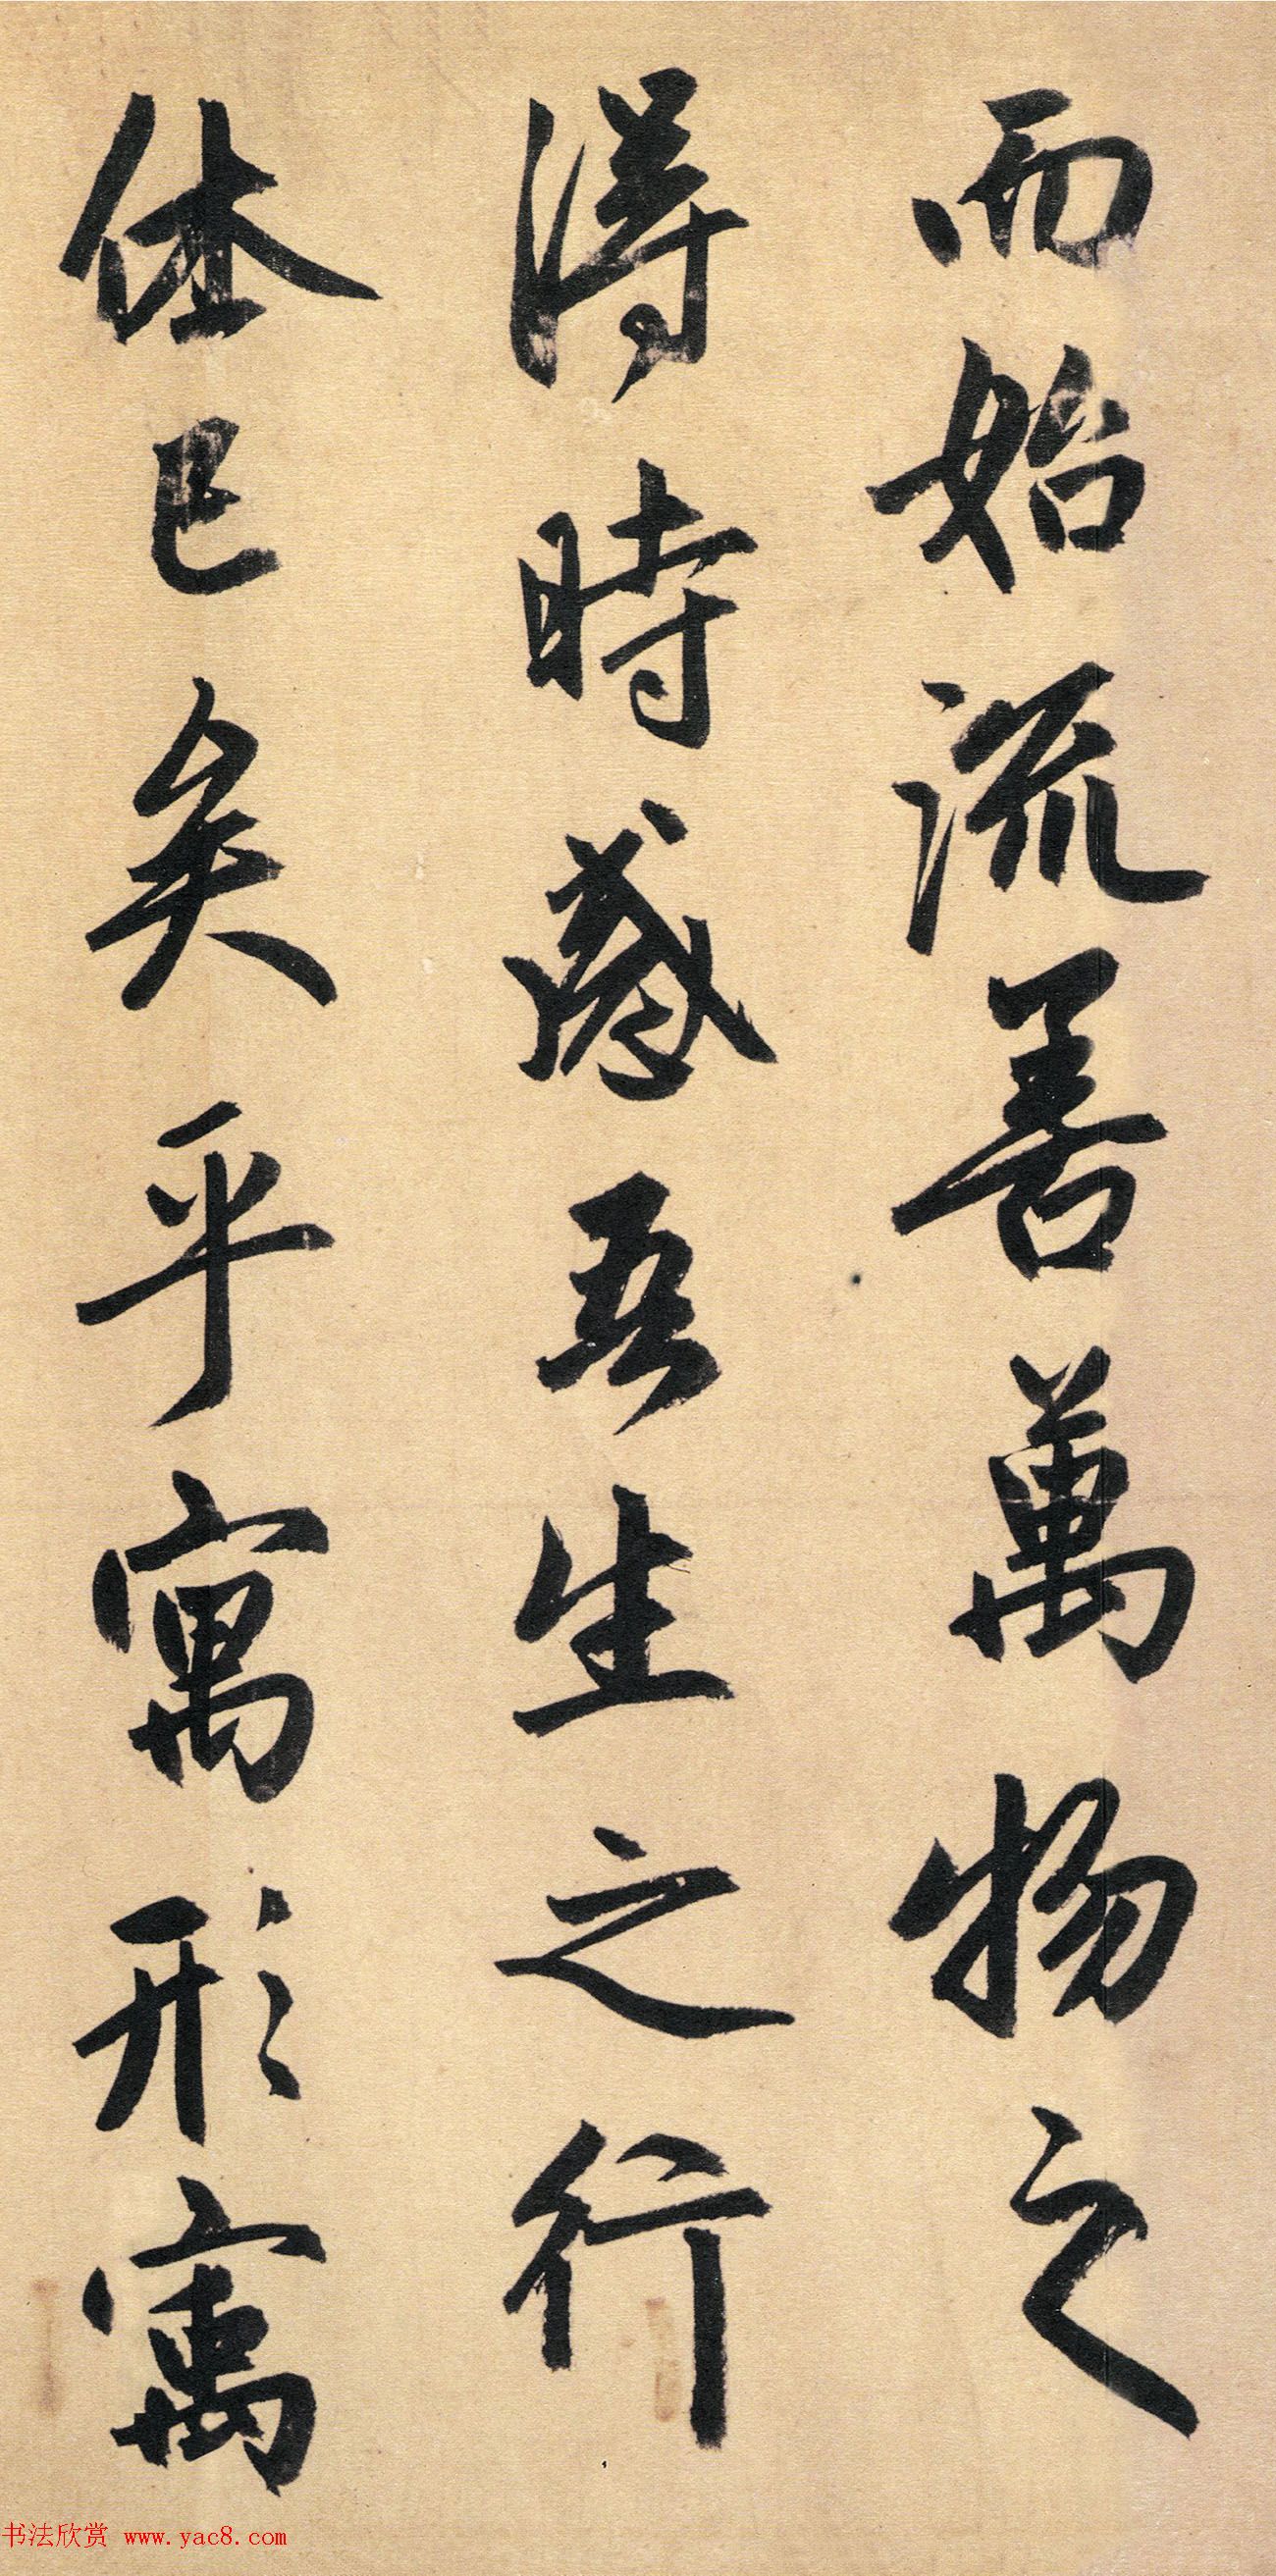 而始流善萬物之
得時感吾生之行
休已矣乎寓形寓
书法欣赏 www.yac8.com